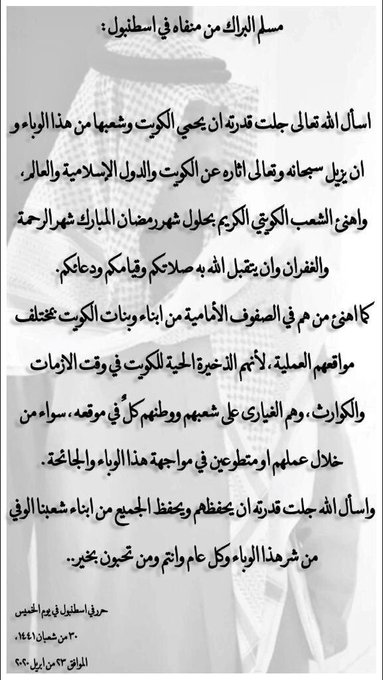 مسلم البراك من منفاه في اسطنبول :
اسأل الله تعالى جلت قدرته ان يحمي الكويت وشعبها من هذا الوباء و
ان يزيل سبحانه وتعالى اثاره عن الكويت والدول الإسلامية والعالم ،
واهنئ الشعب الكويتي الكريم بحلول شهر رمضان المبارك شهر الرحمة
والغفران وان يتقبل الله به صلاتكم وقيامكم ودعائكم.
كما اهنئ من هم في الصفوف الأمامية من ابناء وبنات الكويت بمختلف
مواقعهم العملية ، لأنهم الذخيرة الحية للكويت في وقت الازمات
والكوارث ، وهم الغيارى على شعبهم ووطنهم كلٌ في موقعه ، سواء من
خلال عملهم او متطوعين في مواجهة هذا الوباء والجائحة .
واسأل الله جلت قدرته ان يحفظهم ويحفظ الجميع من ابناء شعبنا الوفي
من شر هذا الوباء وكل عام وانتم ومن تحبون بخير..
حرر في اسطنبول في يوم الخميس
٣٠ من شعبان ١٤٤١،
الموافق ٢٣ من ابريل ٢٠٢٠